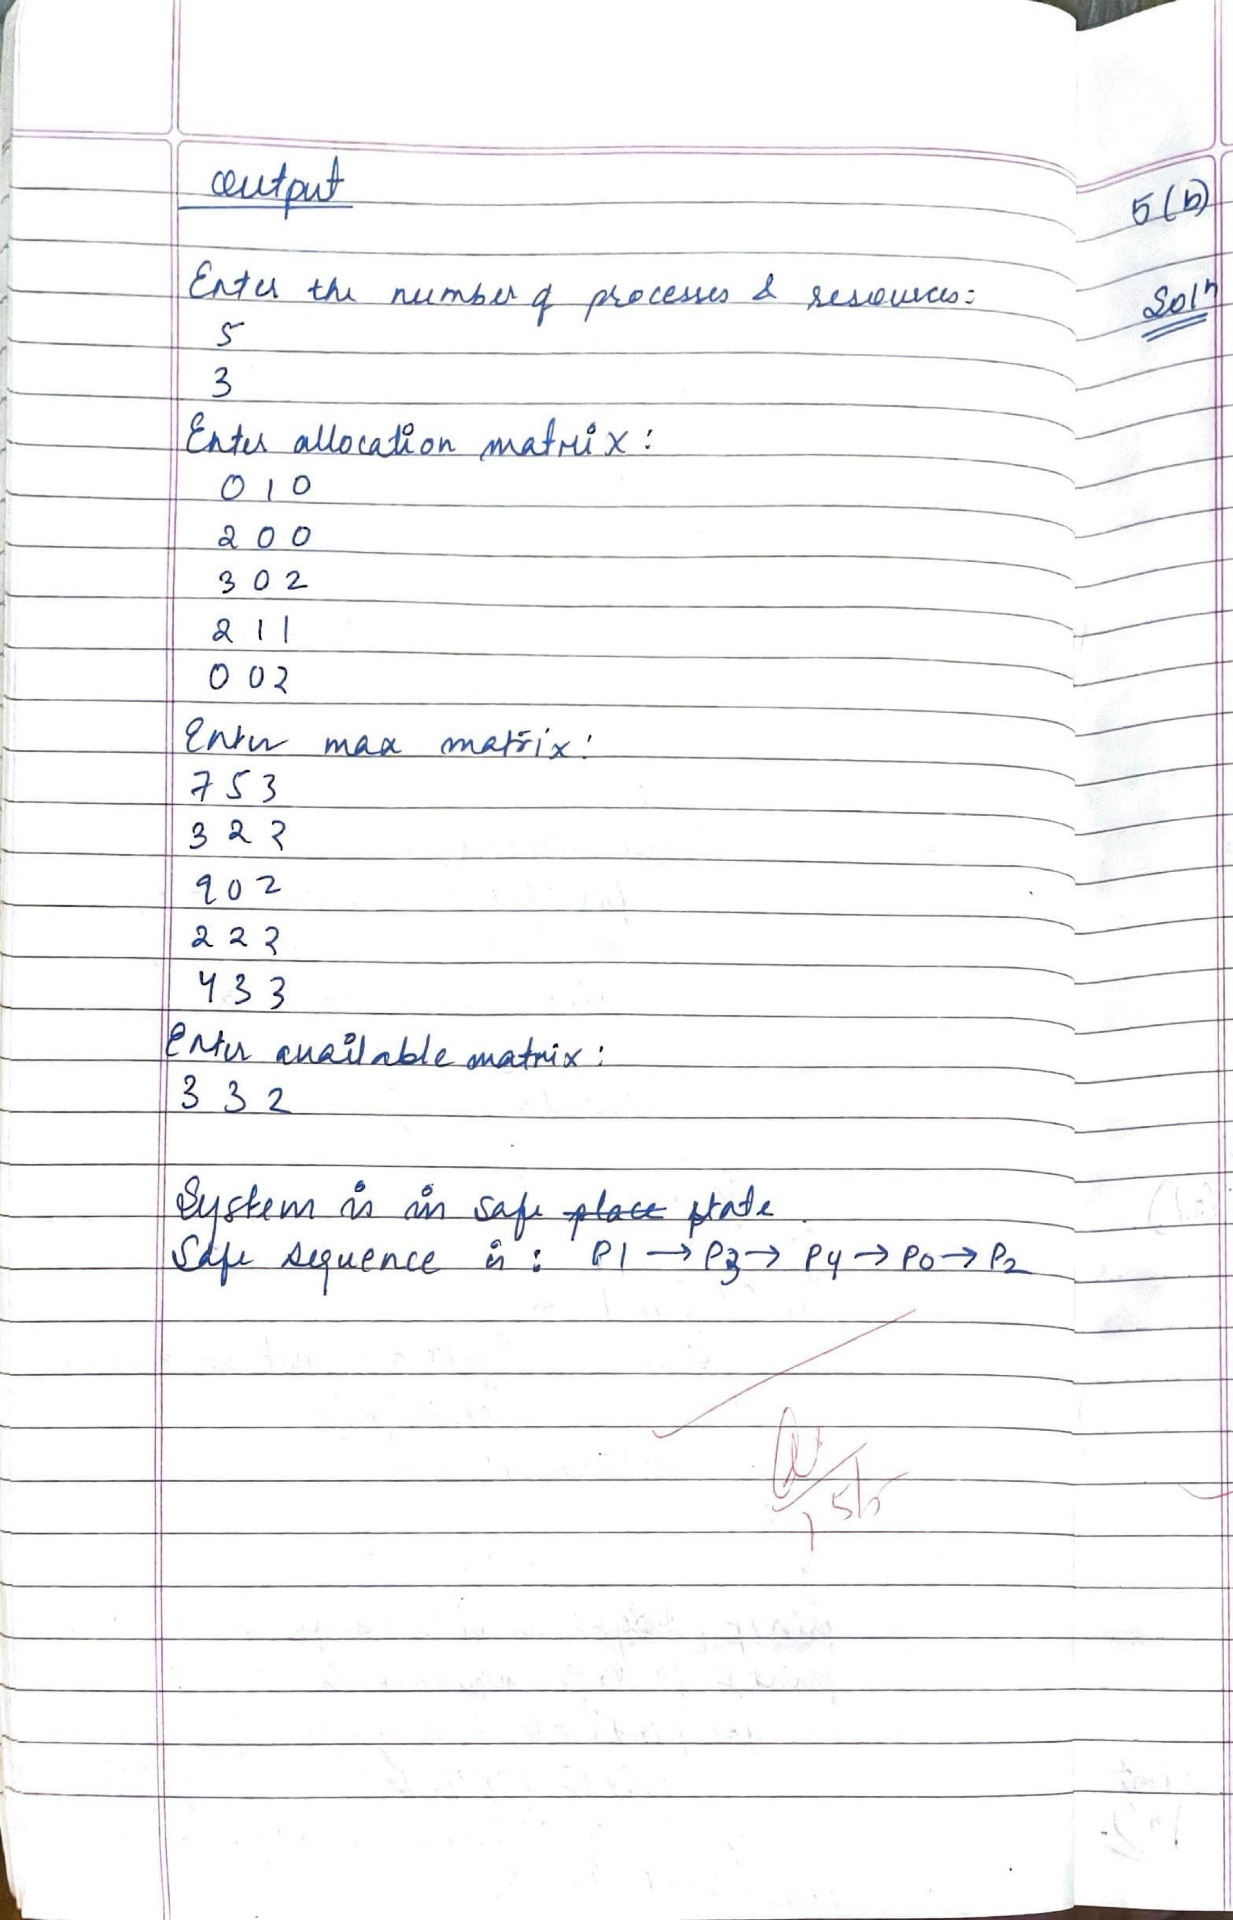 output
Enter the number of processes & resources:
5
3
Enter allocation matrix:
0 1 0
2 0 0
3 0 2
2 1 1
0 0 2
Enter max matrix:
7 5 3
3 2 2
9 0 2
2 2 2
4 3 3
Enter available matrix:
3 3 2
System is in safe place state
Safe sequence is: P1 → P3 → P4 → P0 → P2
5(b)
Solⁿ